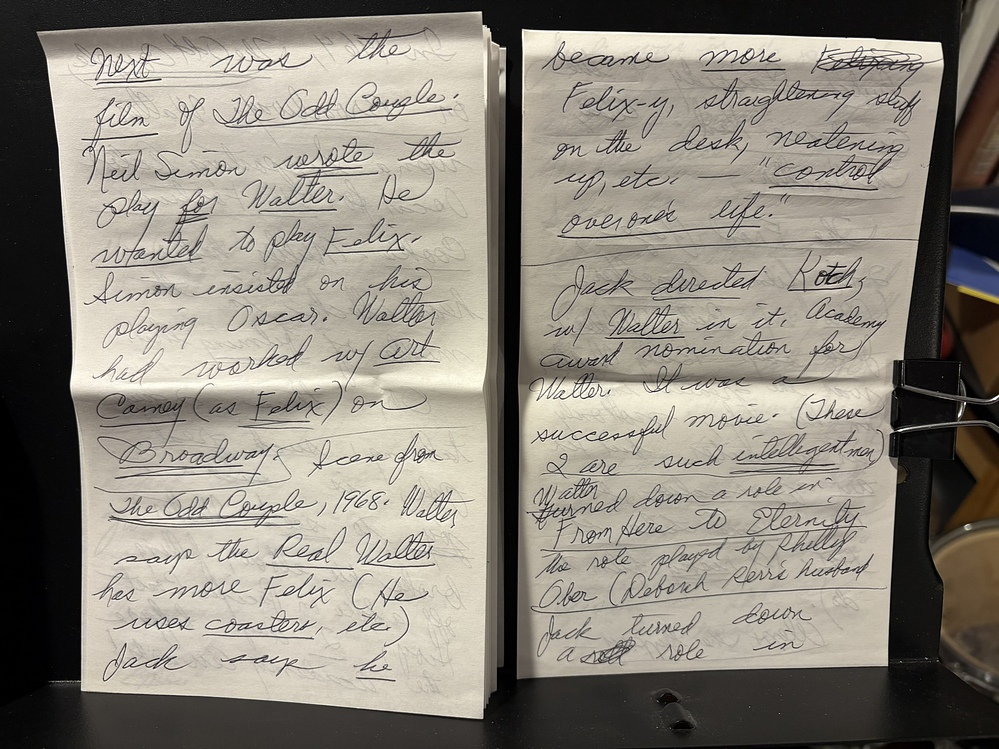 Next was the
film of The Odd Couple.
Neil Simon wrote the
play for Walter. He
wanted to play Felix.
Simon insisted on his
playing Oscar. Walter
had worked w/ Art
Carney (as Felix) on
Broadway. Scene from
The Odd Couple, 1968. Walter
says the Real Walter
has more Felix (He
uses coasters, etc.)
Jack says he
became more
Felix-y, straightening stuff
on the desk, neatening
up, etc. — "control
over one's life."
Jack directed Kotch,
w/ Walter in it. Academy
award nomination for
Walter. It was a
successful movie. (These
2 are such intelligent men)
Walter
turned down a role in
From Here To Eternity
the role played by Philip
Ober (Deborah Kerr's husband
Jack turned down
a role in